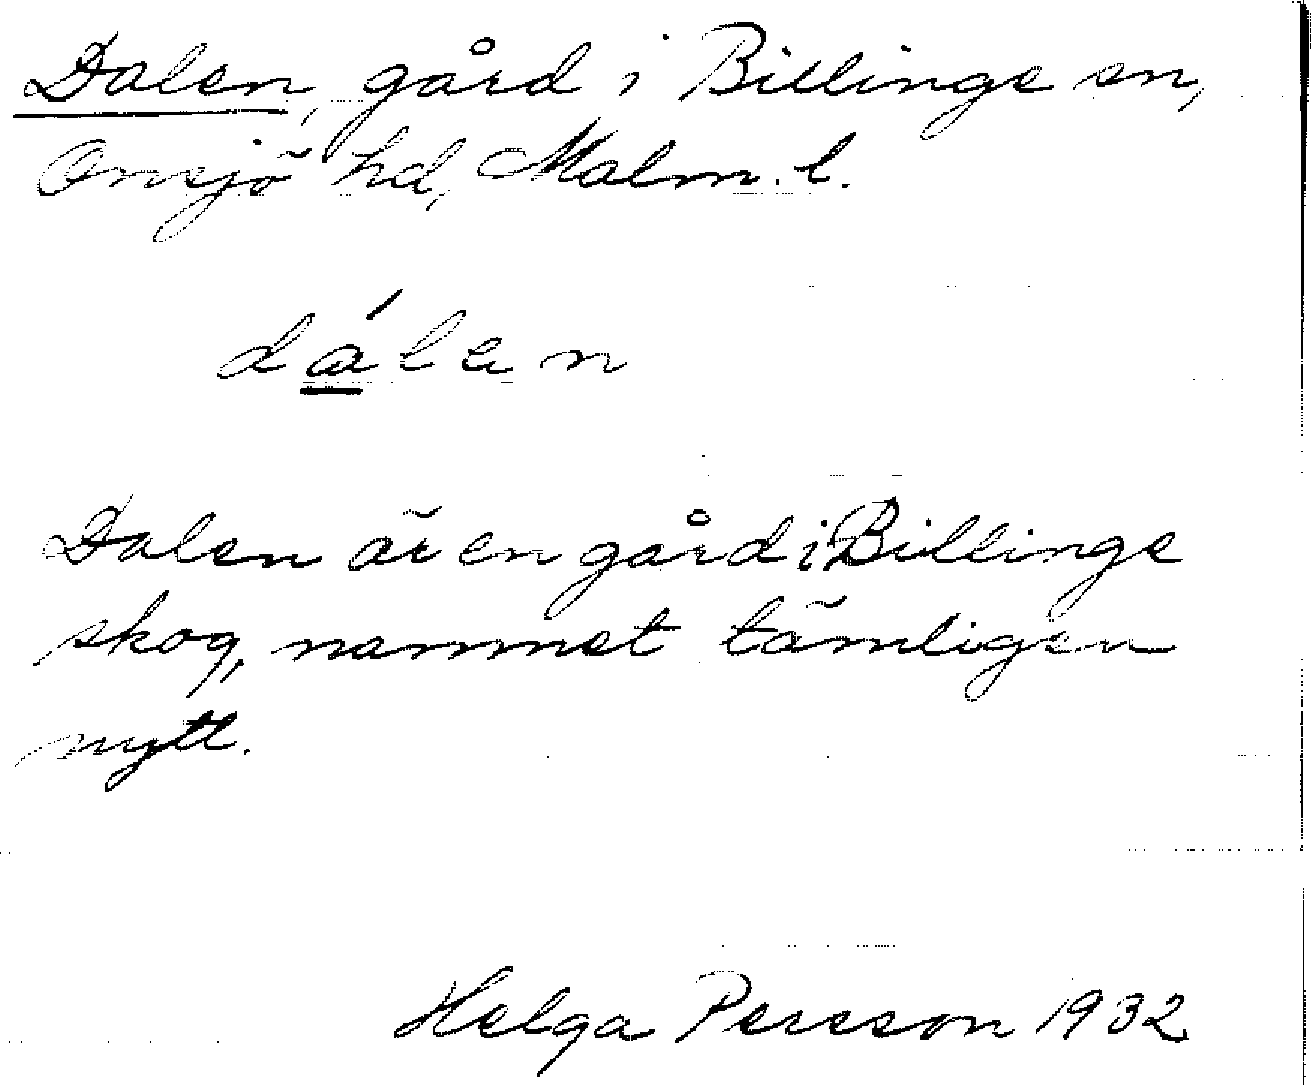 Dalen, gård i Billinge sn,
Onsjö hd, Malm. l.
dálen
Dalen är en gård i Billinge
skog, namnet tämligen
nytt.
Helga Persson 1932